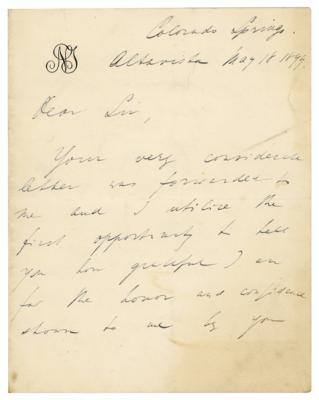 Colorado Springs.
Altavista May 18 1899
Dear Sir,
Your very considerate
letter was forwarded to
me and I utilize the
first opportunity to tell
you how grateful I am
for the honor and confidence
shown to me by you